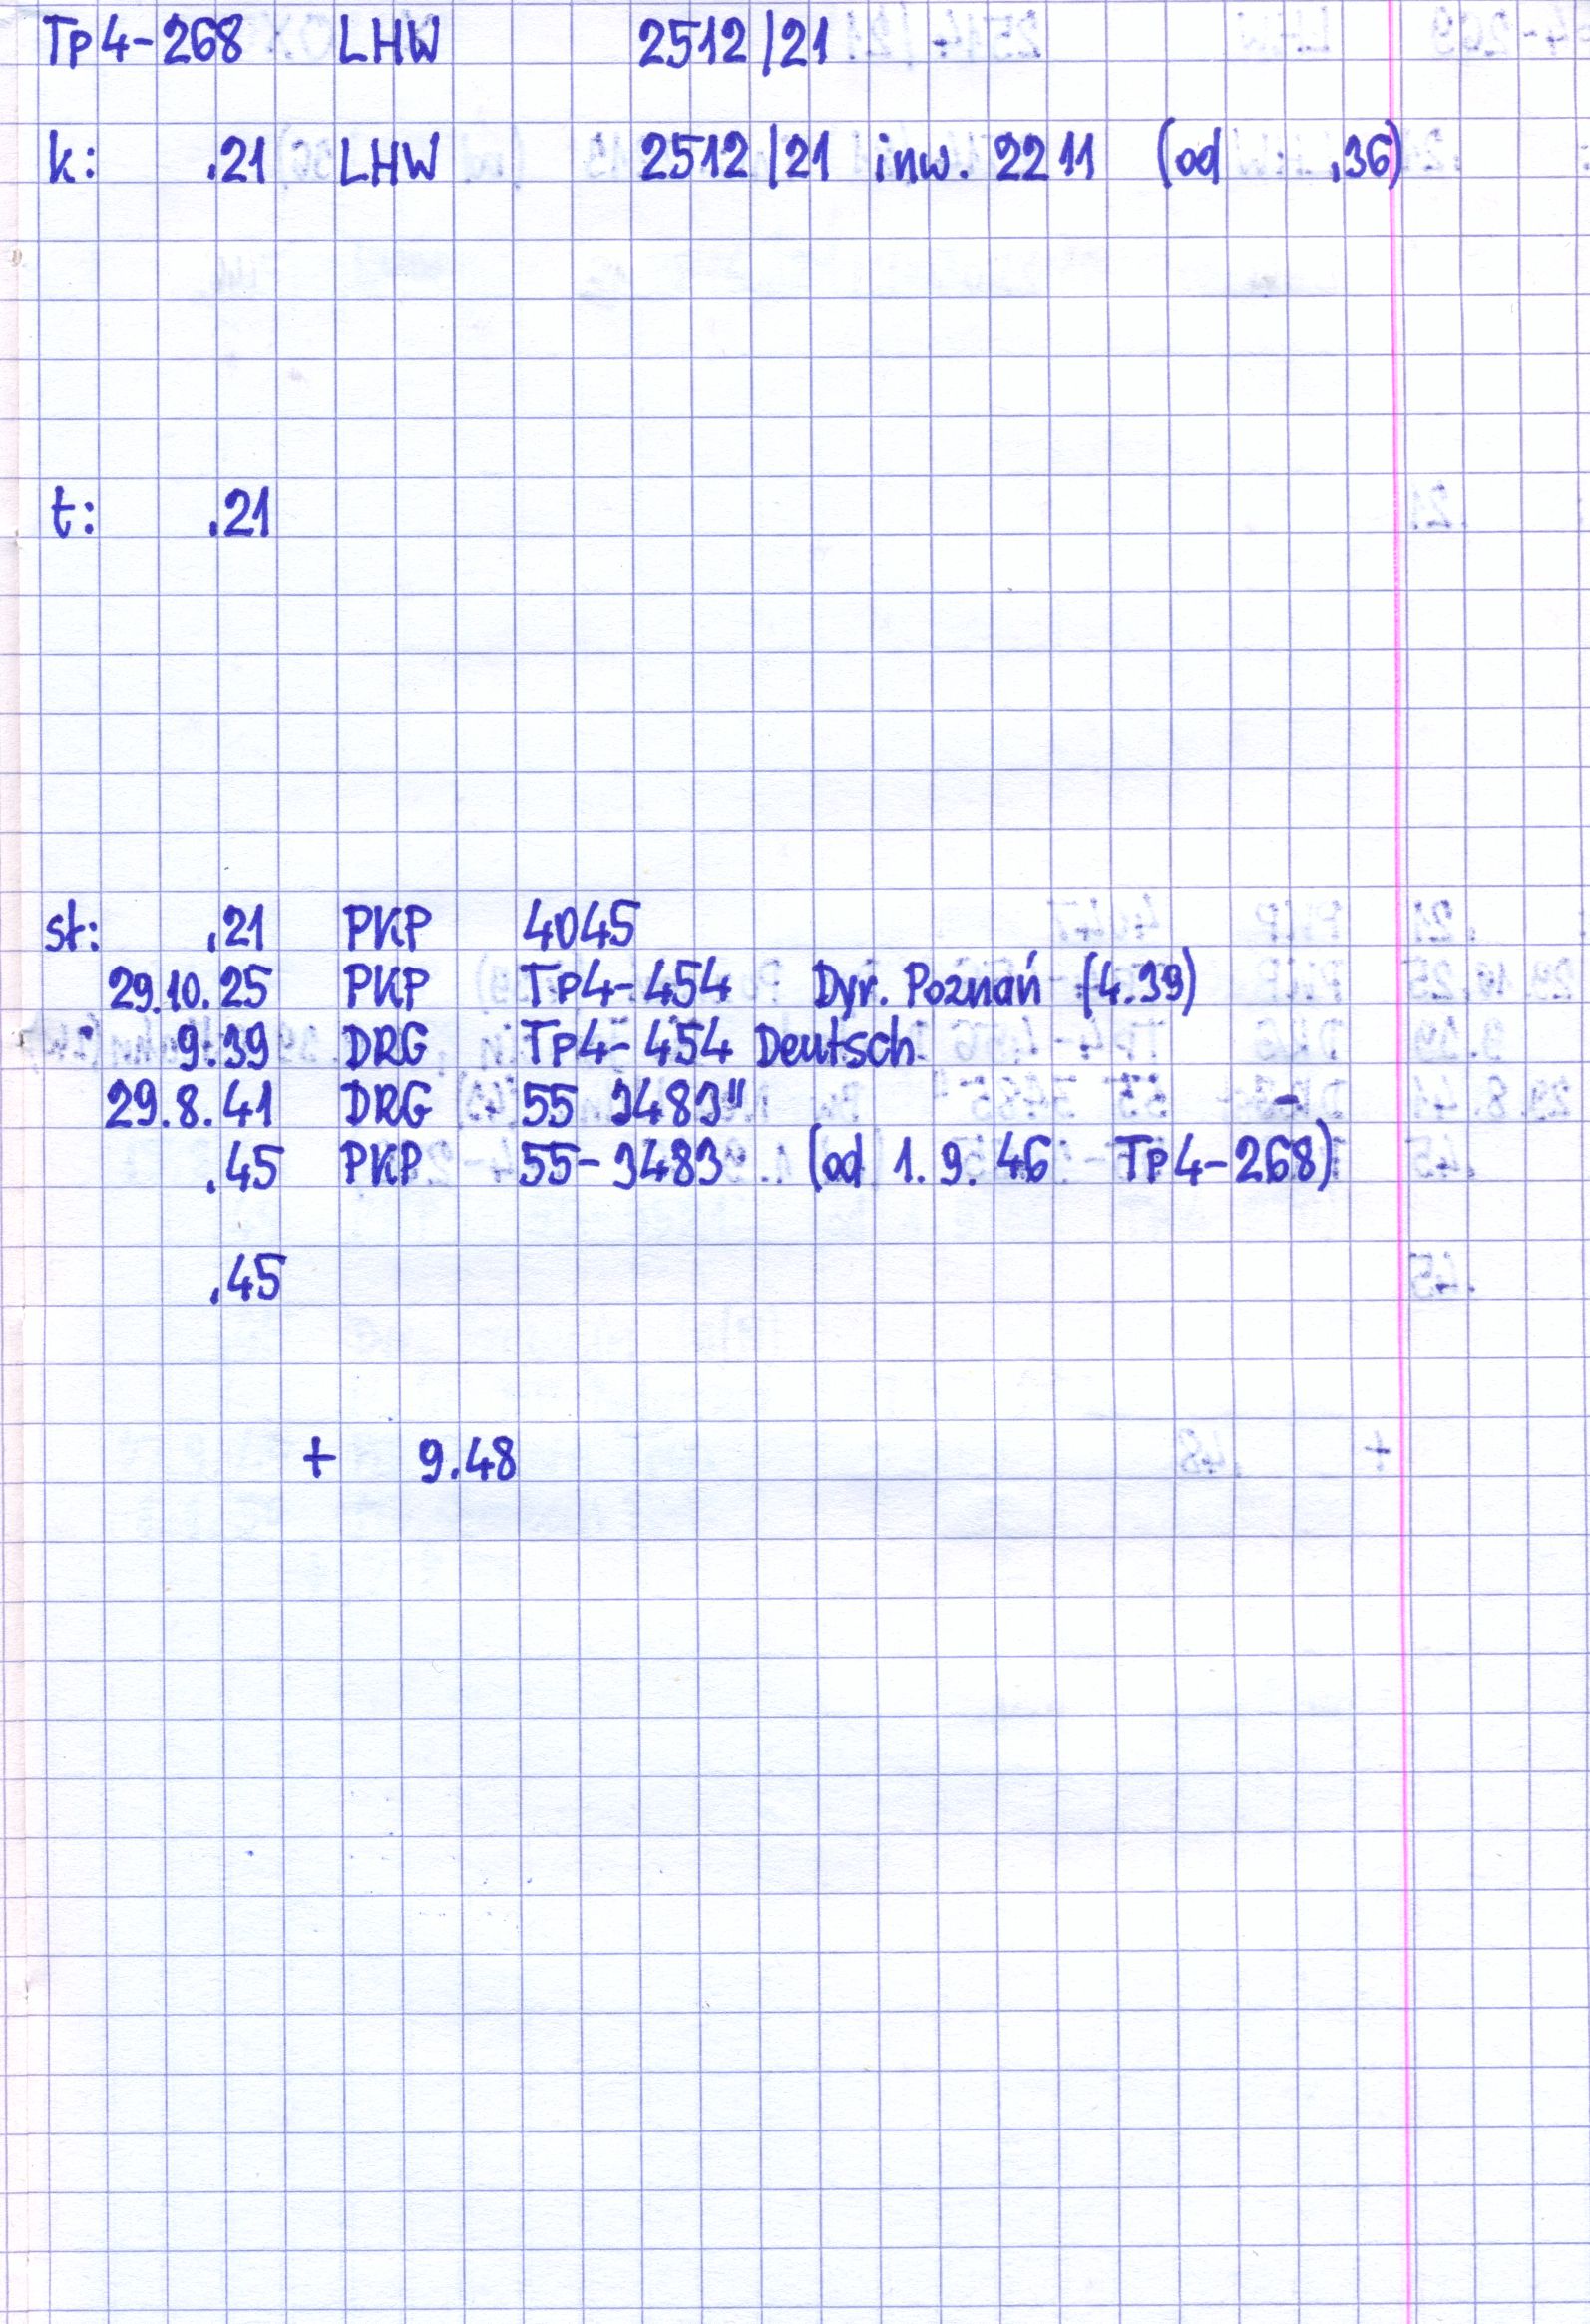 Tp4-268 LHW 2512/21
k: .21 LHW 2512/21 inw. 2211 (od .36)
t: .21
st: .21 PKP 4045
29.10.25 PKP Tp4-454 Dyr. Poznań (4.39)
9.39 DRG Tp4-454 Deutsch
29.8.41 DRG 55 3483" -
.45 PKP 55-3483 (od 1.9.46 Tp4-268)
.45
+ 9.48